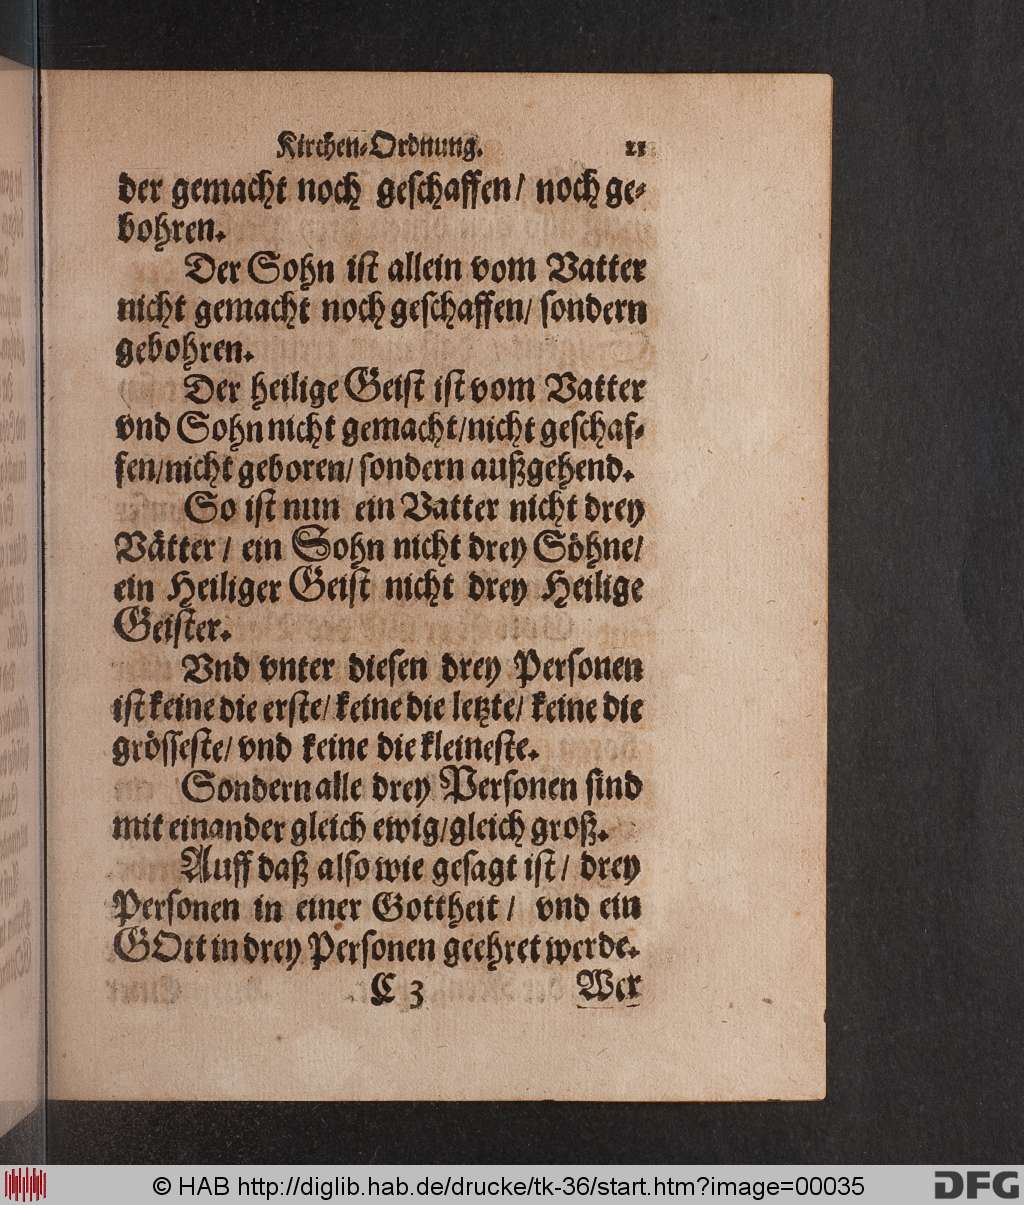 Kirchen-Ordnung. 21
der gemacht noch geschaffen/ noch ge-
bohren.
Der Sohn ist allein vom Vatter
nicht gemacht noch geschaffen/ sondern
gebohren.
Der heilige Geist ist vom Vatter
vnd Sohn nicht gemacht/nicht geschaf-
fen/nicht geboren/ sondern außgehend.
So ist nun ein Vatter nicht drey
Vätter/ ein Sohn nicht drey Söhne/
ein Heiliger Geist nicht drey Heilige
Geister.
Vnd vnter diesen drey Personen
ist keine die erste/ keine die letzte/ keine die
grösseste/ vnd keine die kleineste.
Sondern alle drey Personen sind
mit einander gleich ewig/gleich groß.
Auff daß also wie gesagt ist/ drey
Personen in einer Gottheit/ vnd ein
GOtt in drey Personen geehret werde.
C 3 Wer
© HAB http://diglib.hab.de/drucke/tk-36/start.htm?image=00035
DFG